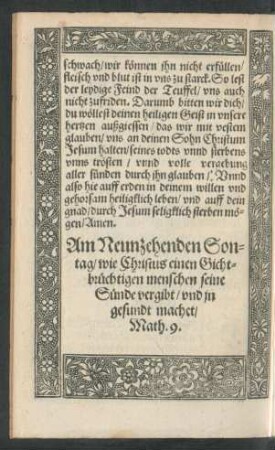 schwach/ wir können ihn nicht erfüllen/
fleisch vnd blut ist in vns zu starck. So lest
der leydige Feind der Teuffel/ vns auch
nicht zufriden. Darumb bitten wir dich/
du wöllest deinen heiligen Geist in vnsere
hertzen außgiessen/ das wir mit vestem
glauben/ vns an deinen Sohn Christum
Jesum halten/ seines todts vnnd sterbens
vnns trösten/ vnnd volle verzebung
aller sünden durch ihn glauben/ Vnnd
also hie auff erden in deinem willen vnd
gehorsam heiligklich leben/ vnd auff dein
gnad/ durch Jesum seligklich sterben mö-
gen/ Amen.
Am Neunzehenden Son-
tag/ wie Christus einen Gicht-
brüchtigen menschen seine
Sünde vergibt/ vnd jn
gesundt machet/
Math. 9.